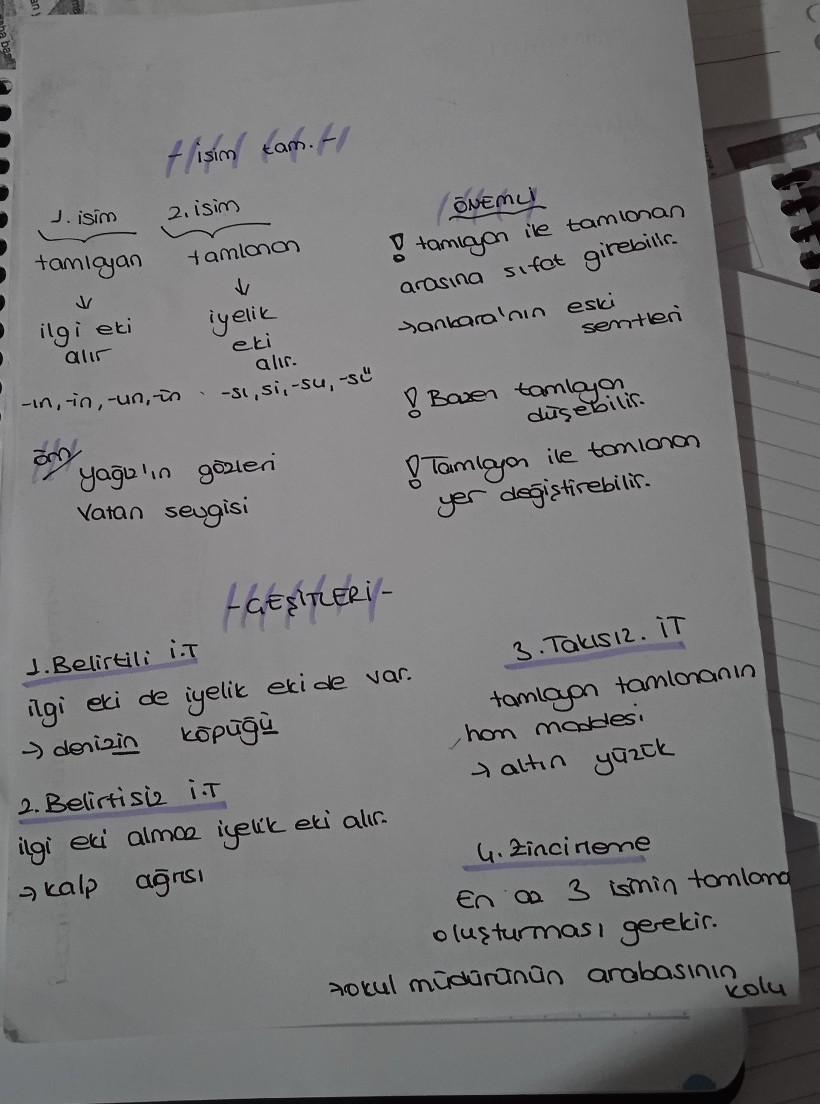 - isim tam. -
1. isim 2. isim
tamlayan tamlanan
↓ ↓
ilgi eki
alır
iyelik
eki
alır.
-ın, -in, -un, -ün -sı, si, -su, -sü
örn/ yağız'ın gözleri
vatan sevgisi
ÖNEMLİ
! tamlayan ile tamlanan
arasına sıfat girebilir.
→ankara'nın eski
semtleri
! Bazen tamlayan
düşebilir.
! Tamlayan ile tamlanan
yer değiştirebilir.
- ÇEŞİTLERİ -
1. Belirtili İ.T
ilgi eki de iyelik eki de var.
→ denizin köpüğü
2. Belirtisiz İ.T
ilgi eki almaz iyelik eki alır.
→ kalp ağrısı
3. Takısız. İT
tamlayan tamlananın
ham maddesi
→ altın yüzük
4. Zincirleme
En az 3 ismin tamlama
oluşturması gerekir.
→okul müdürünün arabasının
kolu